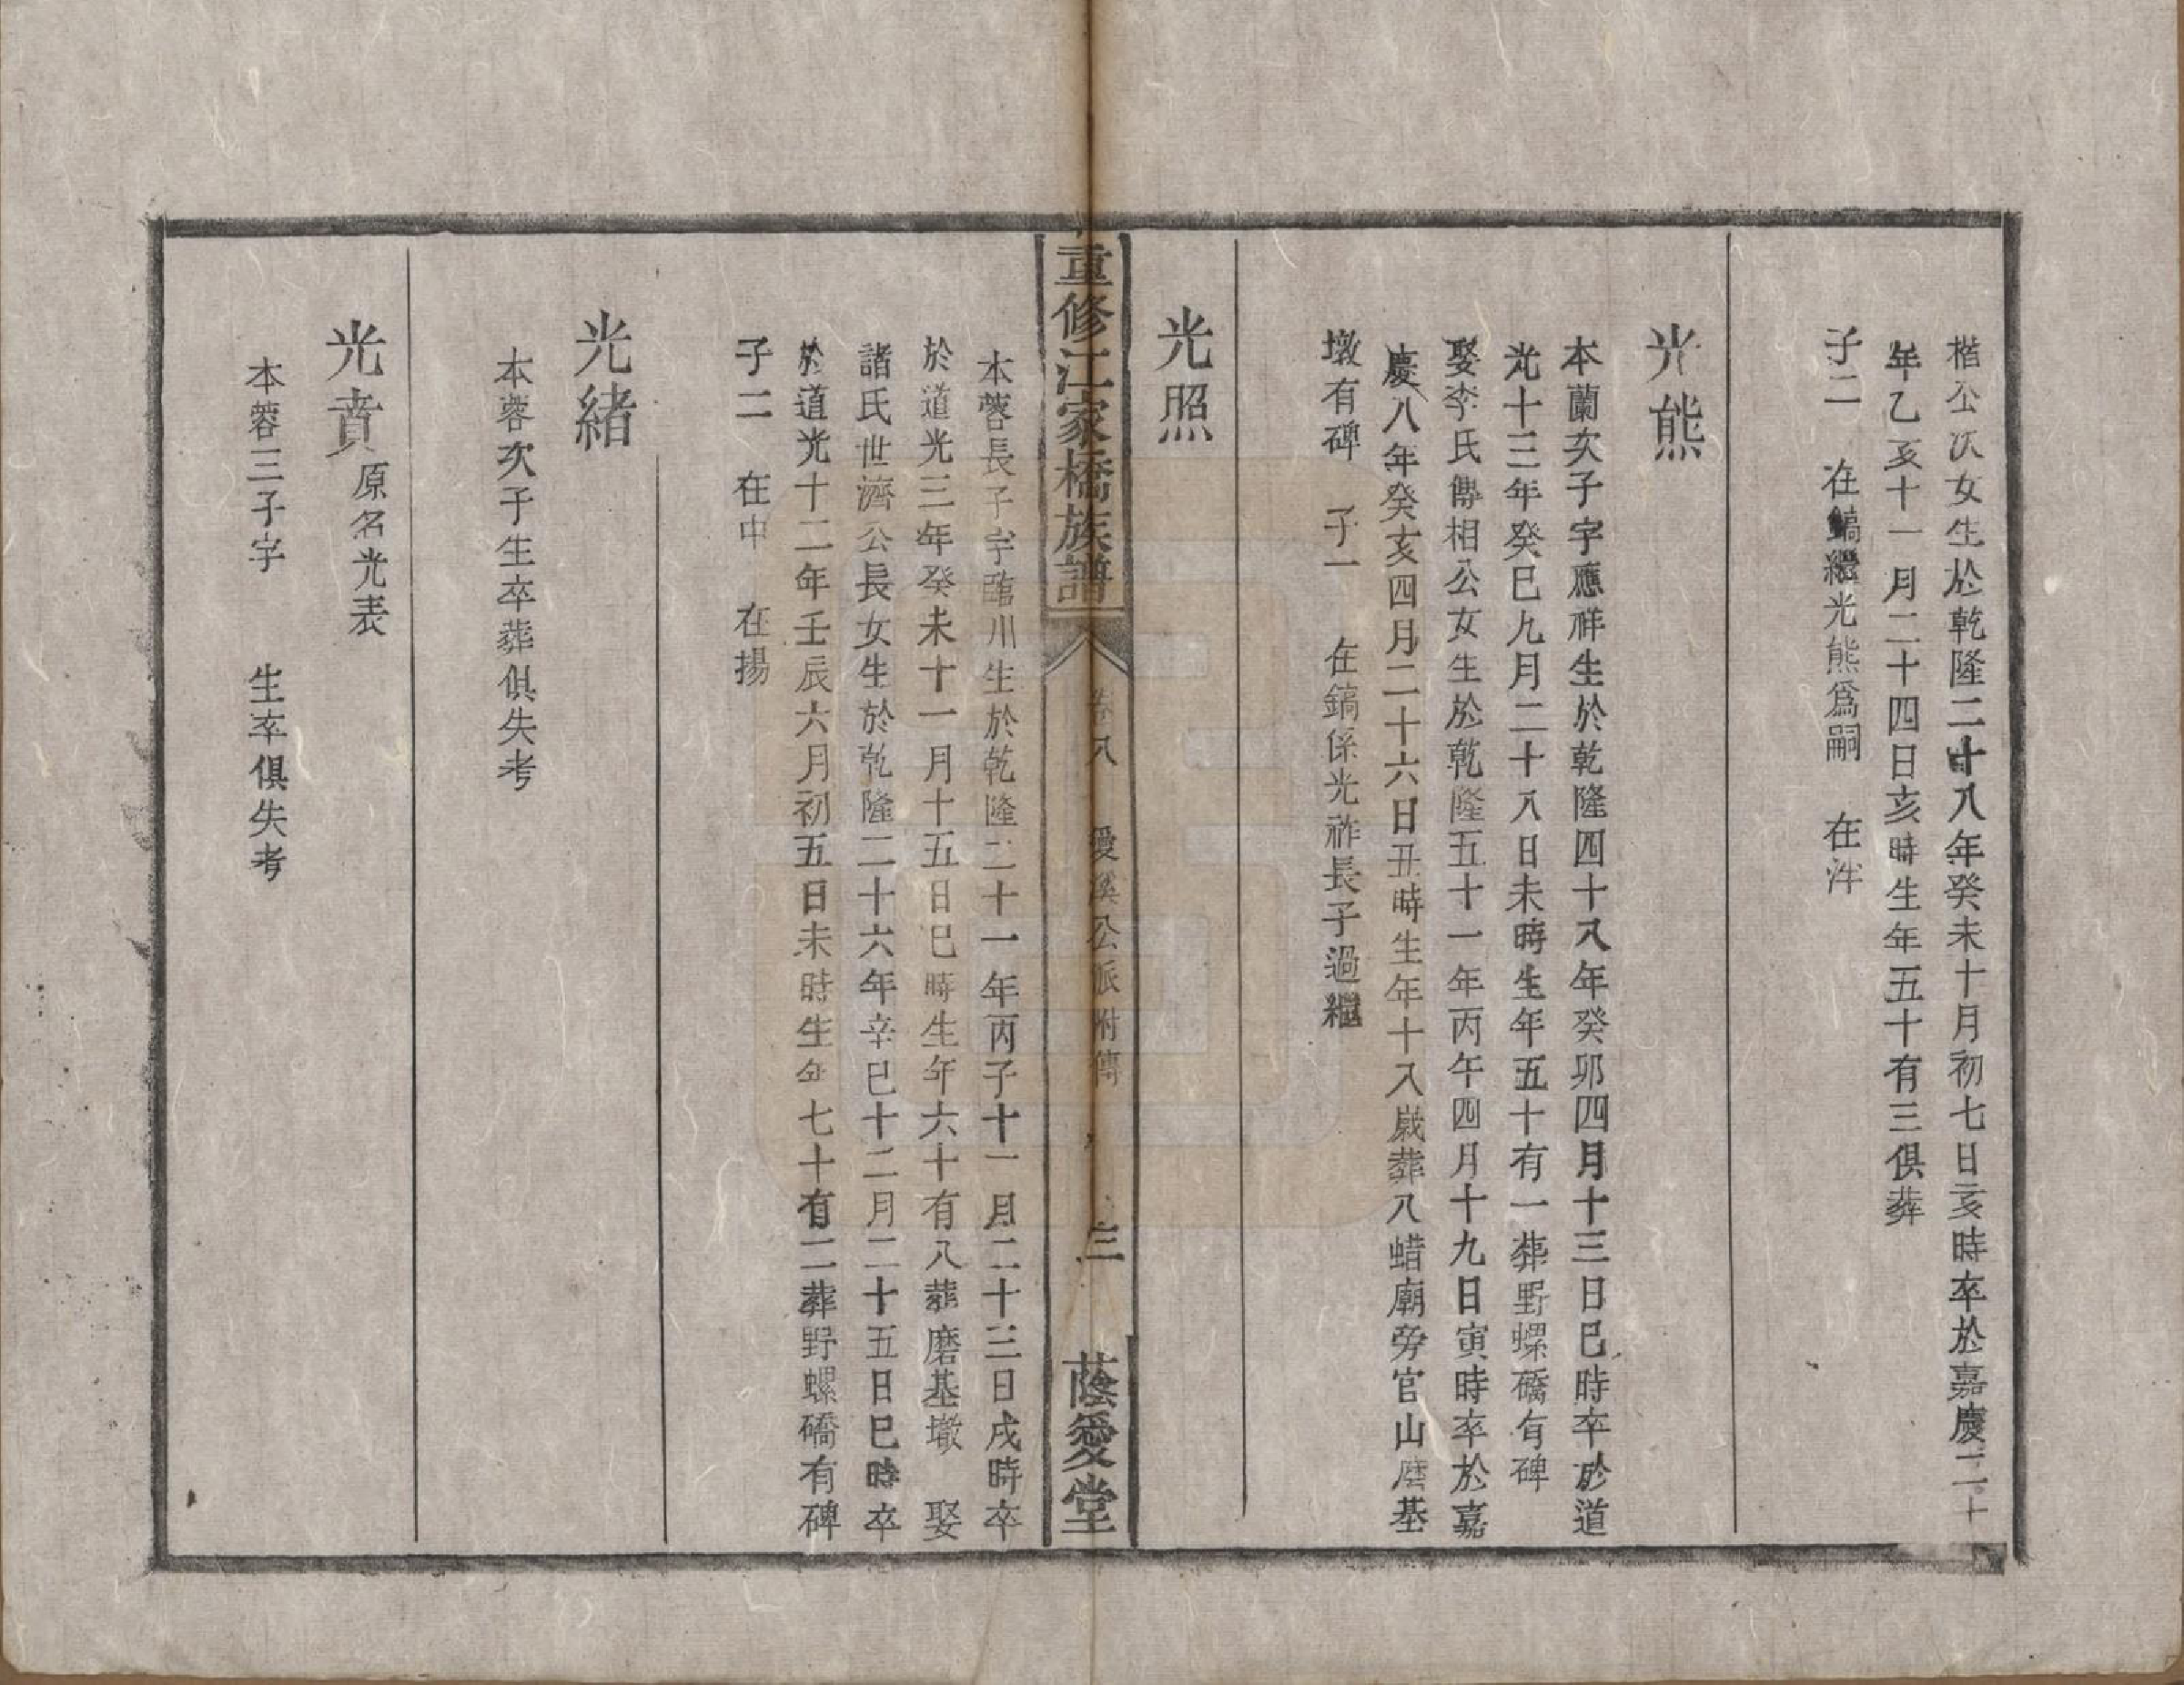 楷公次女生於乾隆二十八年癸未十月初七日亥時卒於嘉慶二十
年乙亥十一月二十四日亥時生年五十有三俱葬
子二　在鎬繼光熊爲嗣　在泮
光熊
本蘭次子字應祥生於乾隆四十八年癸卯四月十三日巳時卒於道
光十三年癸巳九月二十八日未時生年五十有一葬野螺礄有碑
娶李氏傳相公女生於乾隆五十一年丙午四月十九日寅時卒於嘉
慶八年癸亥四月二十六日丑時生年十八歲葬八蜡廟旁官山磨基
墩有碑　子一　在鎬係光祚長子過繼
光照
重修江家橋族譜
卷八　愛溪公派附傳　三
蔭愛堂
本蓉長子字臨川生於乾隆二十一年丙子十一月二十三日戌時卒
於道光三年癸未十一月十五日巳時生年六十有八葬磨基墩　娶
諸氏世濟公長女生於乾隆二十六年辛巳十二月二十五日巳時卒
於道光十二年壬辰六月初五日未時生年七十有二葬野螺礄有碑
子二　在中　在揚
光緒
本蓉次子生卒葬俱失考
光賁　原名光表
本蓉三子字　生卒俱失考